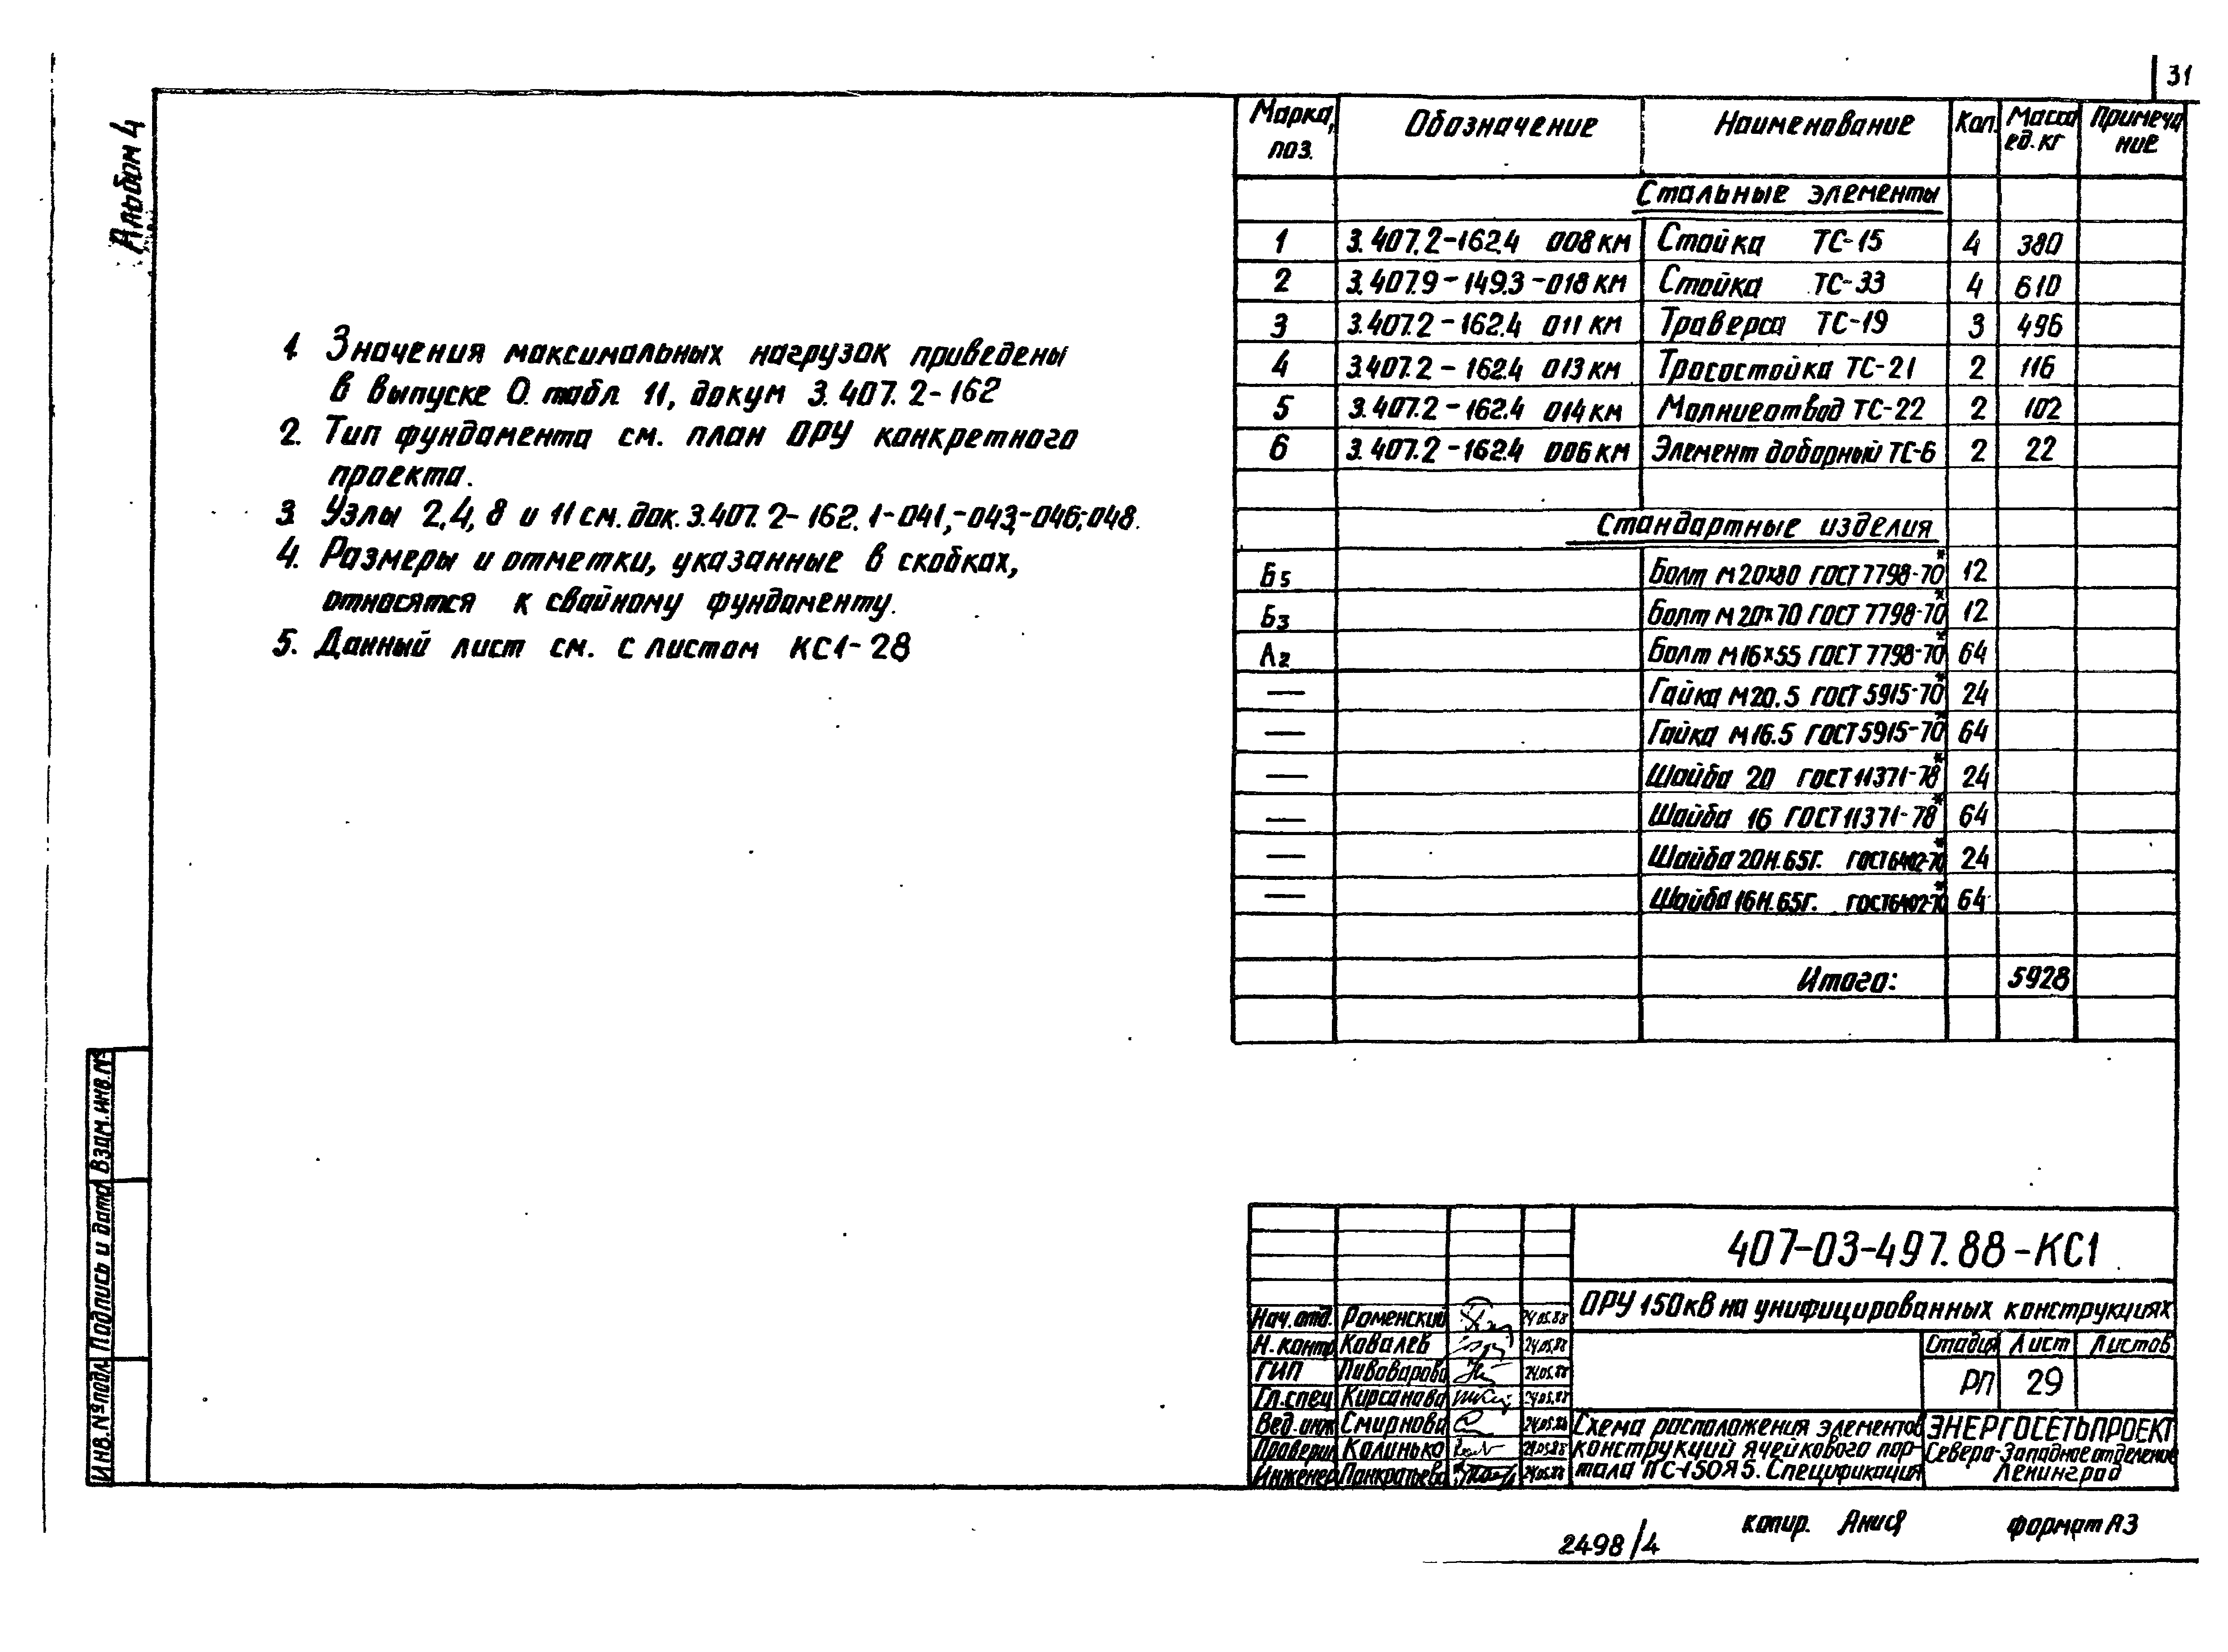 31
Альбом 4
1. Значения максимальных нагрузок приведены
в выпуске 0. табл. 11, докум 3.407.2-162
2. Тип фундамента см. план ОРУ конкретного
проекта.
3. Узлы 2,4, 8 и 11 см. док. 3.407.2-162.1-041,-043,-046,-048.
4. Размеры и отметки, указанные в скобках,
относятся к свайному фундаменту.
5. Данный лист см. с листом КС1-28
Марка, поз. Обозначение Наименование Кол. Масса ед. кг Примечание
Стальные элементы
1 3.407.2-162.4 008 КМ Стойка ТС-15 4 380
2 3.407.9-149.3-018 КМ Стойка ТС-33 4 610
3 3.407.2-162.4 011 КМ Траверса ТС-19 3 496
4 3.407.2-162.4 013 КМ Тросостойка ТС-21 2 116
5 3.407.2-162.4 014 КМ Молниеотвод ТС-22 2 102
6 3.407.2-162.4 006 КМ Элемент доборный ТС-6 2 22
Стандартные изделия
Б5 Болт М20х80 ГОСТ 7798-70* 12
Б3 Болт М20х70 ГОСТ 7798-70* 12
А2 Болт М16х55 ГОСТ 7798-70* 64
— Гайка М20.5 ГОСТ 5915-70* 24
— Гайка М16.5 ГОСТ 5915-70* 64
— Шайба 20 ГОСТ 11371-78* 24
— Шайба 16 ГОСТ 11371-78* 64
— Шайба 20Н.65Г. ГОСТ 6402-70* 24
— Шайба 16Н.65Г. ГОСТ 6402-70* 64
Итого: 5928
Инв.№подл. Подпись и дата Взам.инв.№
407-03-497.88-КС1
ОРУ 150кВ на унифицированных конструкциях
Нач.отд. Роменский 24.05.88
Н.контр Ковалев 24.05.88
ГИП Пивоварова 24.05.88
Гл.спец Кирсанова 24.05.88
Вед.инж Смирнова 24.05.88
Проверил Калинько 24.05.88
Инженер Панкратьева 24.05.88
Стадия Лист Листов
РП 29
Схема расположения элементов
конструкций ячейкового пор-
тала ПС-150Я5. Спецификация
ЭНЕРГОСЕТЬПРОЕКТ
Северо-Западное отделение
Ленинград
копир. Анис
формат А3
2498/4